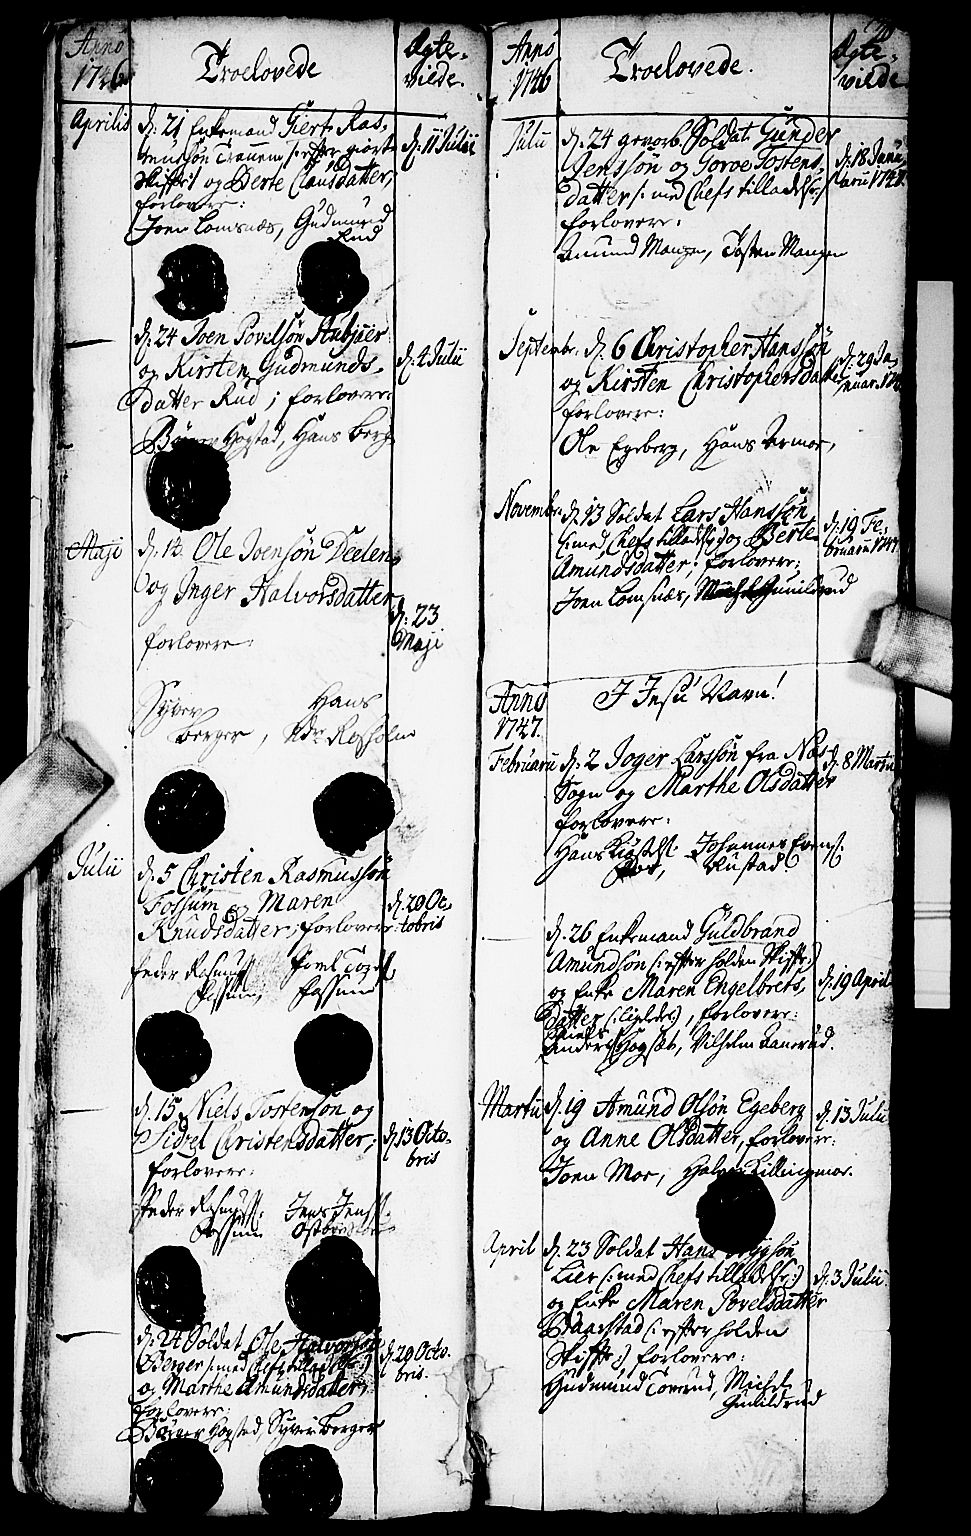 Anno
1746
Troelovede
Ægte-
vilde.
Aprilis
d: 21 Enkemand Giert Ras-
musøn /: efter giort
Skifte :/ og Berte Clausdatter,
forlovere:
Joen Lomsnæs, Gudmund
Rud
d: 11 Julii
d: 24 Joen Povelsøn
og Kirsten Gudmunds-
datter Rud; forlovere:
Hogstad, Hans Berg
d: 2 Julii
Maji
d: 12. Ole Joensøn Deelen
og Inger Halvorsdatter
forlovere:
d: 23
Maji
Syver Hans
Berger, Rosholm
Julii
d: 5 Christen Rasmussøn
Fossum og Maren
Knudsdatter, forlovere:
Peder Rasmuss:
Fossum, Fossum
d. 20 Oc-
tobris
d. 15 Niels Tostensøn og
Sidsel Christensdatter;
forlovere:
Peder Rasmuss: Jens Jenss:
Fossum
d 13 Octo-
bris
d: 24 Soldat Ole Halvorsøn
Berger /: med Chefs tilladelse :/
og Marthe Amundsdatter;
forlovere:
Hogstad, Syver Berger
d. 29 Octo-
bris.
Anno
1746
Troelovede.
Ægte-
vilde
Julii
d: 24 gevorb. Soldat Gunder
Jenssøn og Goroe Tostens-
datter /: med Chefs tilladelse :/
forlovere:
Amund Mangen, Tosten Mangen
d: 18 Janu-
arii 1747.
Septembr. d. 6 Christopher Hanssøn
og Kirsten Christophersdatter
forlovere:
Ole Egeberg, Hans
d: 29 Ja-
nuar.
Novembr. d: 13 Soldat Lars Hanssøn
/: med Chefs tilladelse :/ og Berte
Amundsdatter; forlovere:
Joen Lomsnæs, Michel Gunildrud
d: 19 Fe-
bruarii 1747
Anno
1747.
I Jesu Navn!
Februarii d: 2 Joger Larssøn fra Næs
Sogn og Marthe Olsdatter
forlovere:
Hans Johannes
Rustad.
d: 8 Martii
d. 26 Enkemand Guldbrand
Amundsøn /: efter holden Skifte :/
og Enke Maren Engelbrets-
datter /: ligeledes :/, forlovere:
Anders Hogset, Vilhelm Kanerud.
d: 19 April
Martii d. 19 Amund Olsøn Egeberg
og Anne Olsdatter, forlovere:
Joen Moe, Halvor Killingmoe.
d: 13 Julii
April d. 23 Soldat Hans
Lier /: med Chefs tilladelse :/
og Enke Maren Povelsdatter
Daarstad /: efter holden
Skifte :/ forlovere:
Gudmund Toverud, Michel
Gunildrud
d: 3 Julii